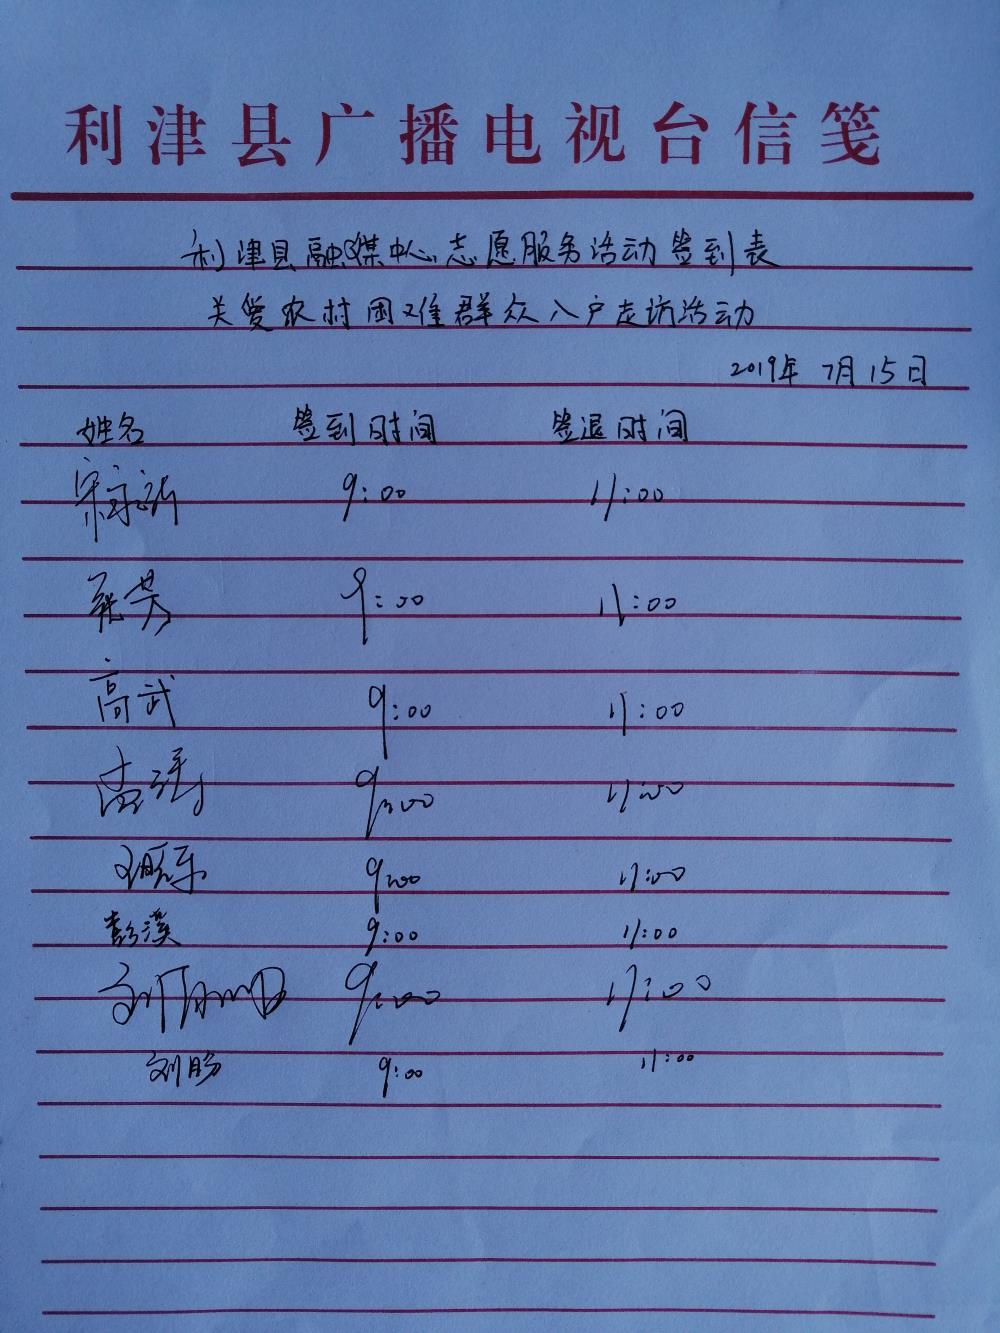 利津县广播电视台信笺
利津县融媒中心志愿服务活动签到表
关爱农村困难群众入户走访活动
2019年 7月 15日
姓名 签到时间 签退时间
9:00 11:00
9:00 11:00
高武 9:00 11:00
9:00 11:00
9:00 11:00
彭溪 9:00 11:00
9:00 11:00
9:00 11:00